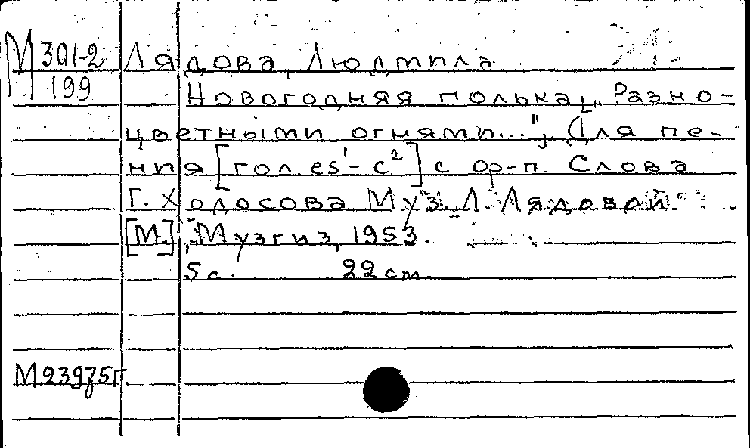 М 301-2 Лядова, Людмила
199 Новогодняя полька [„Разно-
цветными огнями..."]. Для пе-
ния [гол. es¹ - c²] с ф-п. Слова
Г. Ходосова Муз. Л. Лядовой.
[М.], Музгиз, 1953.
5 с. 22 см.